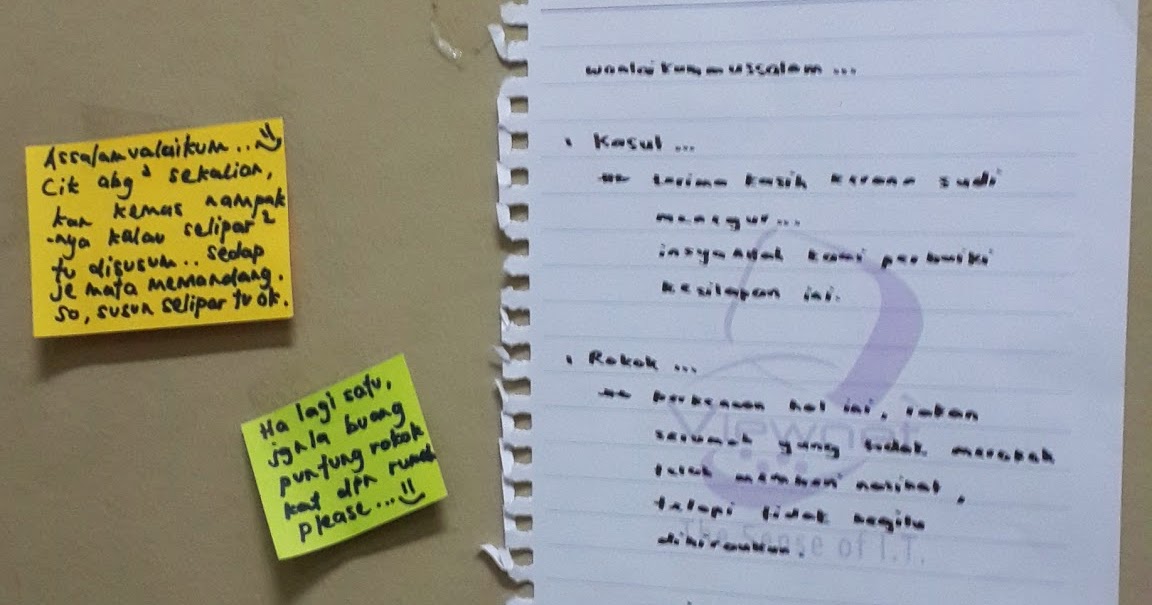 Assalamualaikum..
Cik abg² sekalian,
kan kemas nampak
-nya kalau selipar²
tu disusun.. sedap
je mata memandang.
so, susun selipar tu ok.
Ha lagi satu,
jgnla buang
puntung rokok
kat dpn rumah
please...
waalaikummussalam ...
• Kasut ...
terima kasih kerana sudi
menegur...
insyaallah kami perbaiki
kesilapan ini.
• Rokok ...
perkenaan hal ini, rakan
serumah yang tidak merokok
telah memberi nasihat,
tetapi tidak begitu
dihiraukan.
Viewnet
The Sense of I.T.